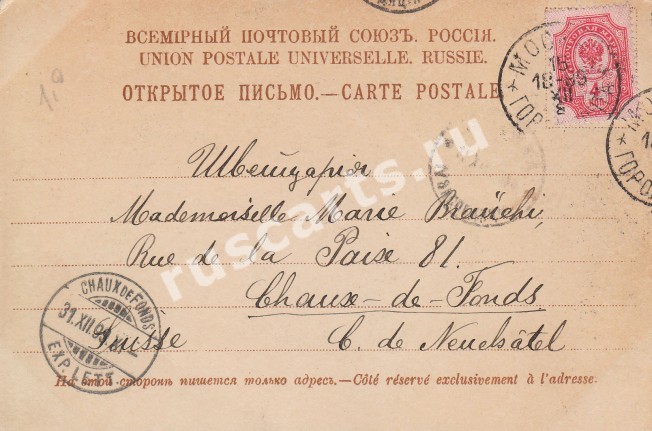 ВСЕМІРНЫЙ ПОЧТОВЫЙ СОЮЗЪ. РОССІЯ.
UNION POSTALE UNIVERSELLE. RUSSIE.
ОТКРЫТОЕ ПИСЬМО.—CARTE POSTALE
МОС
ГОРО
4
Швейцарія
Mademoiselle Marie
Rue de la Paise 81.
Chaux-de-Fonds
Suisse C. de Neuchâtel
CHAUX DE FONDS
31.XII.99
EXP. LETT.
На этой сторонѣ пишется только адресъ.—Côté réservé exclusivement à l'adresse.
ruscarts.ru